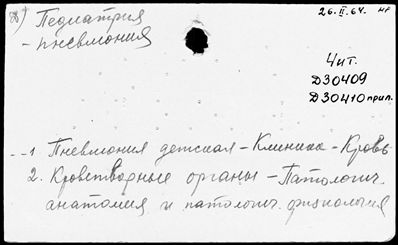 д) Педиатрия
- пневмония
26.II.64. нг
Чит.
Д30409
Д30410 прил.
1. Пневмония детская - Клиника - Кровь
2. Кроветворные органы - Патологич.
анатомия и патологич. физиология